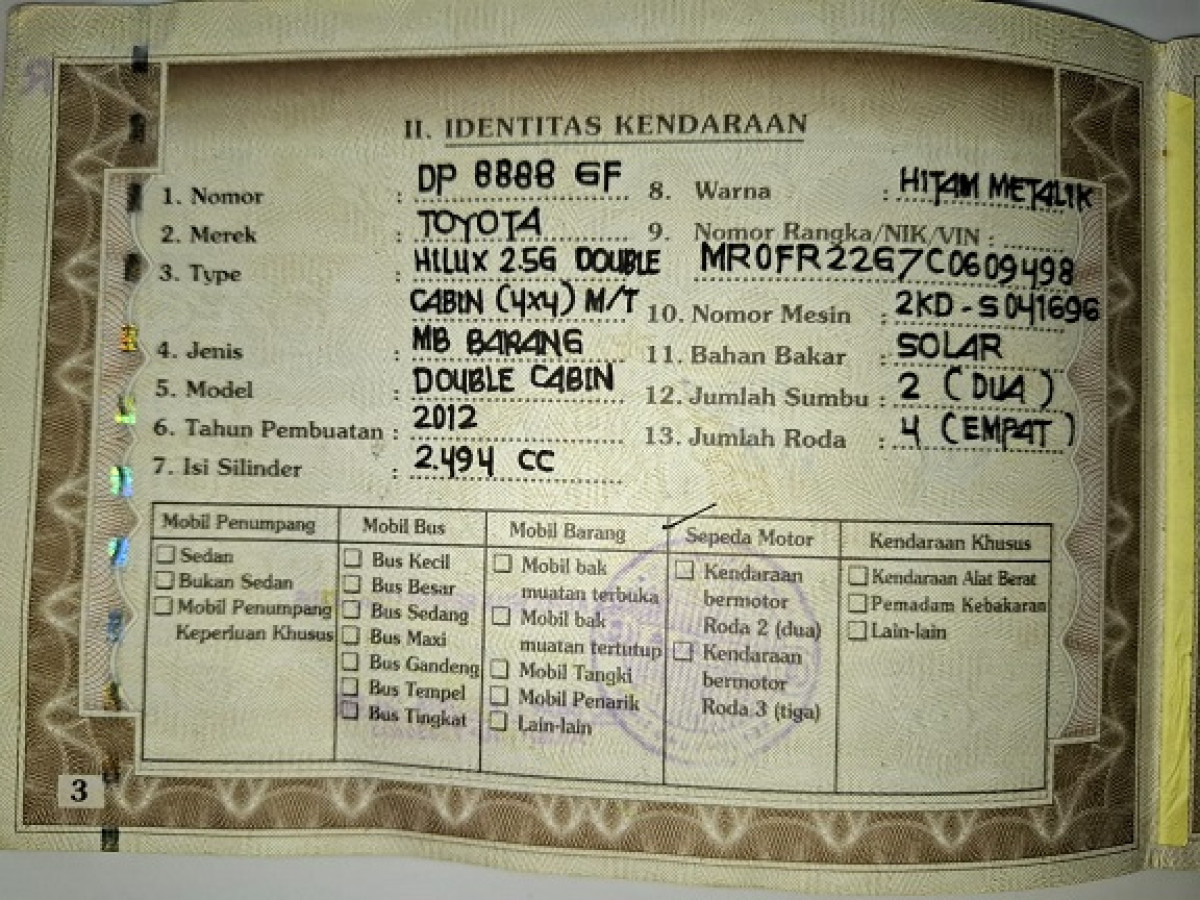 II. IDENTITAS KENDARAAN
1. Nomor : DP 8888 GF
2. Merek : TOYOTA
3. Type : HILUX 2.5G DOUBLE
CABIN (4X4) M/T
4. Jenis : MB BARANG
5. Model : DOUBLE CABIN
6. Tahun Pembuatan : 2012
7. Isi Silinder : 2.494 CC
8. Warna : HITAM METALIK
9. Nomor Rangka/NIK/VIN :
MR0FR22G7C0609498
10. Nomor Mesin : 2KD-S041696
11. Bahan Bakar : SOLAR
12. Jumlah Sumbu : 2 (DUA)
13. Jumlah Roda : 4 (EMPAT)
Mobil Penumpang
Sedan
Bukan Sedan
Mobil Penumpang
Keperluan Khusus
Mobil Bus
Bus Kecil
Bus Besar
Bus Sedang
Bus Maxi
Bus Gandeng
Bus Tempel
Bus Tingkat
Mobil Barang
Mobil bak
muatan terbuka
Mobil bak
muatan tertutup
Mobil Tangki
Mobil Penarik
Lain-lain
Sepeda Motor
Kendaraan
bermotor
Roda 2 (dua)
Kendaraan
bermotor
Roda 3 (tiga)
Kendaraan Khusus
Kendaraan Alat Berat
Pemadam Kebakaran
Lain-lain
3